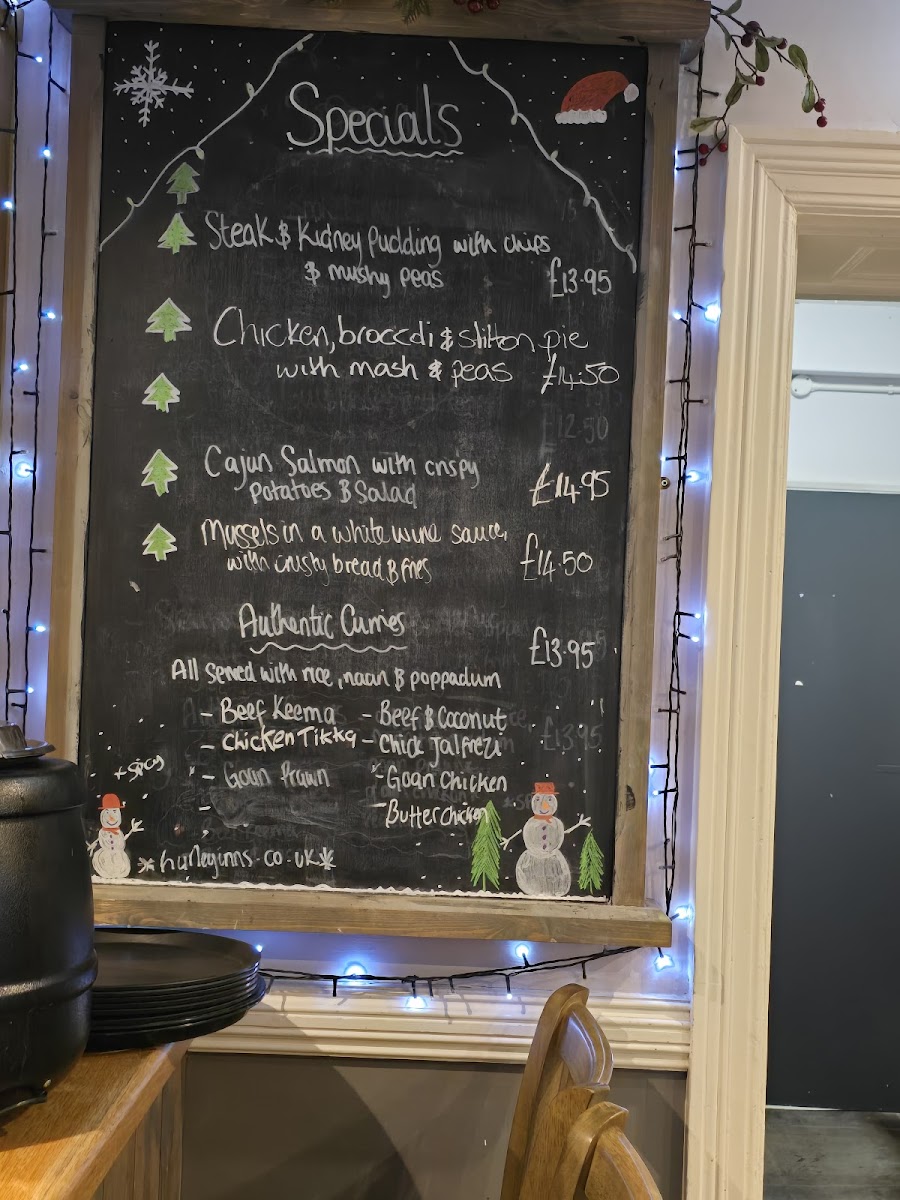 Specials
Steak & Kidney Pudding with chips
& mushy peas
£13.95
Chicken, broccoli & stilton pie
with mash & peas £14.50
£12.50
Cajun Salmon with crispy
potatoes & Salad
£14.95
Mussels in a white wine sauce,
with crusty bread & fries
£14.50
Authentic Curries
£13.95
All served with rice, naan & poppadum
- Beef Keema - Beef & Coconut
- Chicken Tikka - Chick Jalfrezi
- Goan Prawn - Goan Chicken
- Butter chicken
+ spicy
* hurleyinns.co.uk *
£13.95